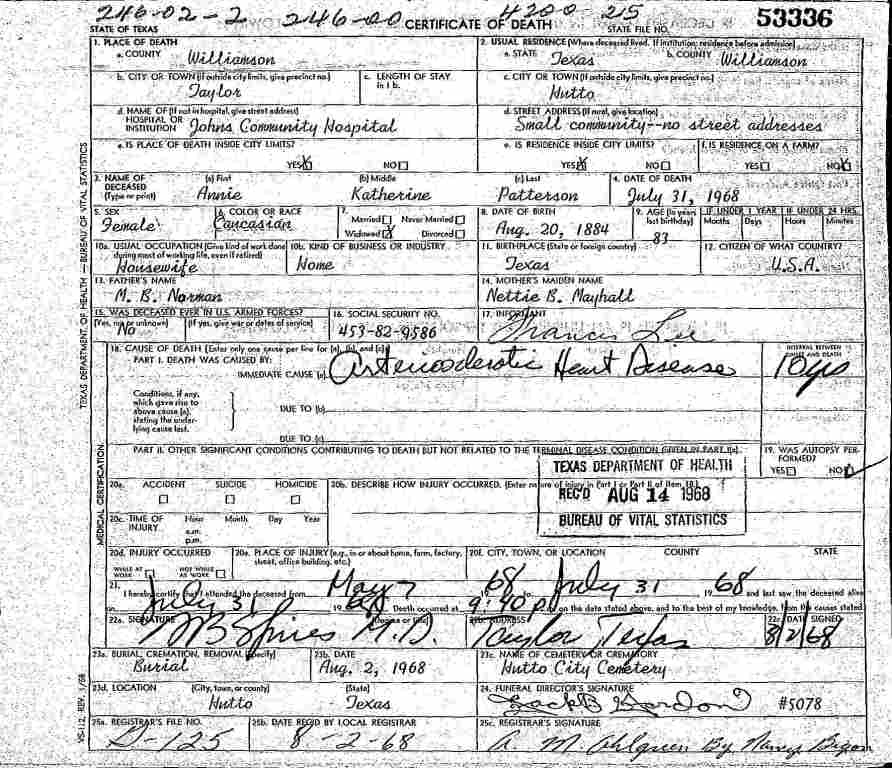 246-02-2 246-00 4200 25
STATE OF TEXAS CERTIFICATE OF DEATH STATE FILE NO. 53336
1. PLACE OF DEATH 2. USUAL RESIDENCE (Where deceased lived. If institution: residence before admission)
a. COUNTY Williamson a. STATE Texas b. COUNTY Williamson
b. CITY OR TOWN (If outside city limits, give precinct no.) Taylor c. LENGTH OF STAY in 1 b. c. CITY OR TOWN (If outside city limits, give precinct no.) Hutto
d. NAME OF (If not in hospital, give street address) HOSPITAL OR INSTITUTION Johns Community Hospital d. STREET ADDRESS (If rural, give location) Small community--no street addresses
e. IS PLACE OF DEATH INSIDE CITY LIMITS? e. IS RESIDENCE INSIDE CITY LIMITS? f. IS RESIDENCE ON A FARM?
YES X NO YES X NO YES NO X
3. NAME OF DECEASED (Type or print) (a) First Annie (b) Middle Katherine (c) Last Patterson 4. DATE OF DEATH July 31, 1968
5. SEX Female 6. COLOR OR RACE Caucasian 7. Married Never Married Widowed X Divorced 8. DATE OF BIRTH Aug. 20, 1884 9. AGE (In years last birthday) 83 IF UNDER 1 YEAR Months Days IF UNDER 24 HRS. Hours Minutes
10a. USUAL OCCUPATION (Give kind of work done during most of working life, even if retired) Housewife 10b. KIND OF BUSINESS OR INDUSTRY Home 11. BIRTHPLACE (State or foreign country) Texas 12. CITIZEN OF WHAT COUNTRY? U.S.A.
13. FATHER'S NAME M. B. Norman 14. MOTHER'S MAIDEN NAME Nettie B. Mayhall
15. WAS DECEASED EVER IN U.S. ARMED FORCES? (Yes, no, or unknown) No (If yes, give war or dates of service) 16. SOCIAL SECURITY NO. 453-82-9586 17. INFORMANT Francis Lee
18. CAUSE OF DEATH (Enter only one cause per line for (a), (b), and (c)) INTERVAL BETWEEN ONSET AND DEATH
PART I. DEATH WAS CAUSED BY:
IMMEDIATE CAUSE (a) Arteriosclerotic Heart Disease 10 yrs
Conditions, if any, which gave rise to above cause (a), stating the underlying cause last.
DUE TO (b)
DUE TO (c)
PART II. OTHER SIGNIFICANT CONDITIONS CONTRIBUTING TO DEATH BUT NOT RELATED TO THE TERMINAL DISEASE CONDITION GIVEN IN PART I(a). 19. WAS AUTOPSY PERFORMED? YES NO
20a. ACCIDENT SUICIDE HOMICIDE 20b. DESCRIBE HOW INJURY OCCURRED. (Enter nature of injury in Part I or Part II of item 18.)
TEXAS DEPARTMENT OF HEALTH
REC'D AUG 14 1968
BUREAU OF VITAL STATISTICS
20c. TIME OF INJURY Hour a.m. p.m. Month Day Year
20d. INJURY OCCURRED WHILE AT WORK NOT WHILE AT WORK 20e. PLACE OF INJURY (e.g., in or about home, farm, factory, street, office building, etc.) 20f. CITY, TOWN, OR LOCATION COUNTY STATE
21. I hereby certify that I attended the deceased from May 7 1968 to July 31 1968 and last saw the deceased alive
on July 31 1968 Death occurred at 9:40 p.m. on the date stated above, and to the best of my knowledge, from the causes stated.
22a. SIGNATURE (Degree or title) M.D. 22b. ADDRESS Taylor Texas 22c. DATE SIGNED 8/2/68
23a. BURIAL, CREMATION, REMOVAL (Specify) Burial 23b. DATE Aug. 2, 1968 23c. NAME OF CEMETERY OR CREMATORY Hutto City Cemetery
23d. LOCATION (City, town, or county) Hutto (State) Texas 24. FUNERAL DIRECTOR'S SIGNATURE #5078
25a. REGISTRAR'S FILE NO. D-125 25b. DATE REC'D BY LOCAL REGISTRAR 8-2-68 25c. REGISTRAR'S SIGNATURE A. M. Ahlgreen By Nancy
TEXAS DEPARTMENT OF HEALTH — BUREAU OF VITAL STATISTICS
MEDICAL CERTIFICATION
VS-112, REV. 1/68